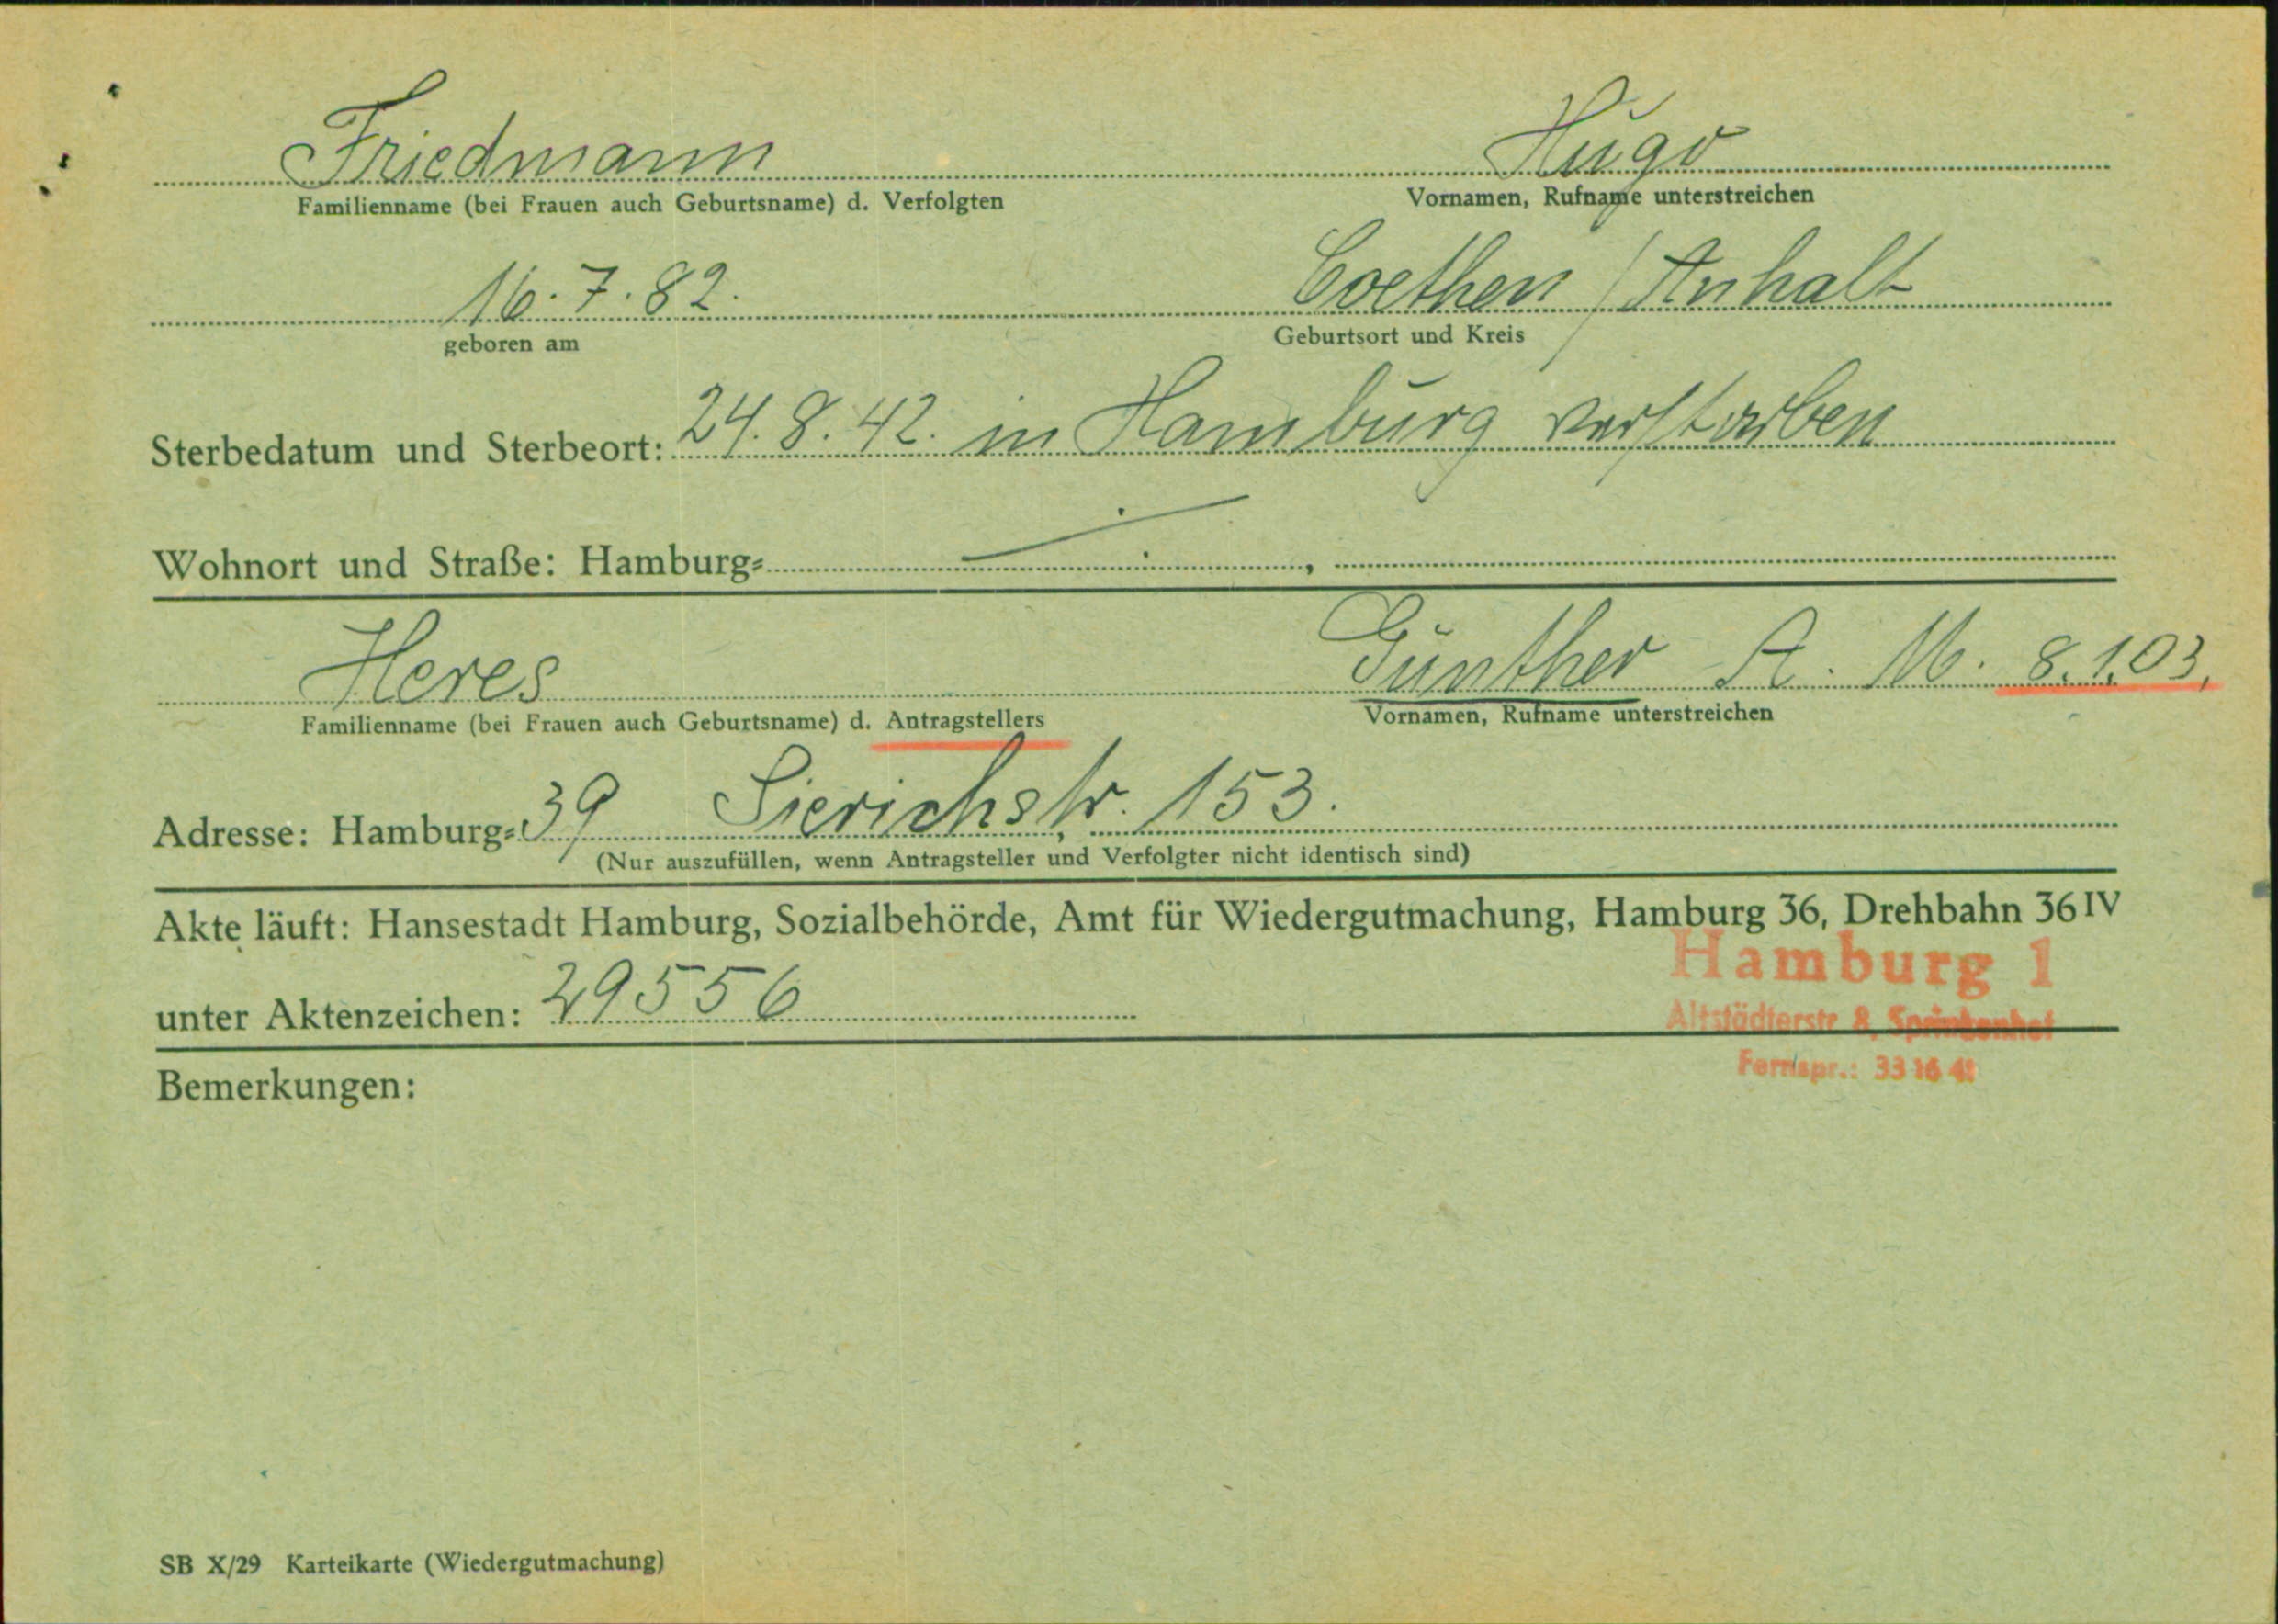 Friedmann Hugo
Familienname (bei Frauen auch Geburtsname) d. Verfolgten Vornamen, Rufname unterstreichen
16.7.82. Coethen / Anhalt
geboren am Geburtsort und Kreis
Sterbedatum und Sterbeort: 24.8.42. in Hamburg verstorben
Wohnort und Straße: Hamburg=
Heres Günther A. M. 8.1.03.
Familienname (bei Frauen auch Geburtsname) d. Antragstellers Vornamen, Rufname unterstreichen
Adresse: Hamburg= 39 Sierichstr. 153.
(Nur auszufüllen, wenn Antragsteller und Verfolgter nicht identisch sind)
Akte läuft: Hansestadt Hamburg, Sozialbehörde, Amt für Wiedergutmachung, Hamburg 36, Drehbahn 36 IV
Hamburg 1
unter Aktenzeichen: 29556
Altstädterstr 8, Sprinkenhof
Fernspr.: 33 16 41
Bemerkungen:
SB X/29 Karteikarte (Wiedergutmachung)